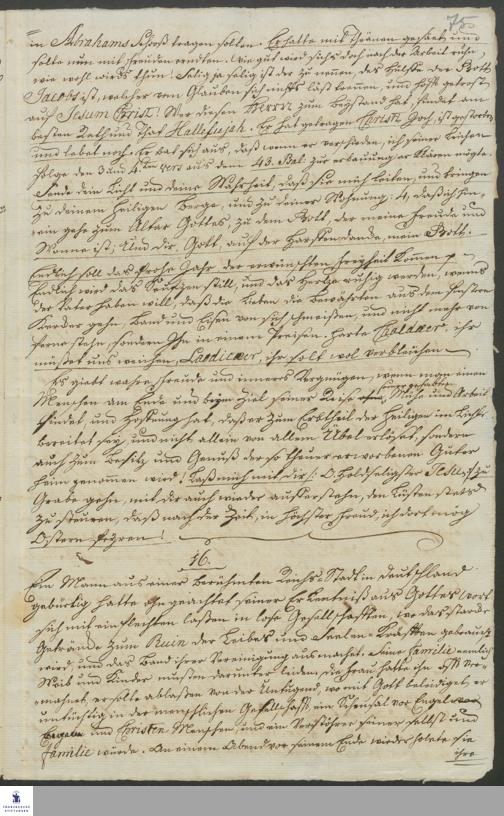 75
in Abrahams Schooß tragen solten. Er hatte mit Thränen gesäet, und
solte nun mit Freuden erndten. Wie gut wird sichs doch nach der Arbeit ruhn,
wie wohl wirds thun! Selig ja selig ist der zu nennen, des Hülffe der Gott
Jacobs ist, welcher vom Glauben sich nichts läst trennen, und hofft getrost
auf Jesum Christ! Wer diesen Herrn zum Beystand hat, findet am
besten Rath und That Hallelujah. Er hat getragen Christi Joch, ist gestorben
und lebet noch. Er bat sich aus, daß wenn er verschieden, ich seiner Leichen
folge den 3 und 4ten Vers aus dem 43. Psal: zur erbauung erklären mögte.
Sende dein Licht und deine Wahrheit, daß sie mich leiten, und bringen
zu deinem heiligen Berge, und zu deiner Wohnung; 4, daß ich hin-
ein gehe zum Altar Gottes, zu dem Gott, der meine Freude und
Wonne ist, und dir, Gott, auf der Harffen dancke, mein Gott.
Endlich soll das frohe Jahr der erwünschten Freyheit komen
Endlich wird das Seufzen still, und das Hertze ruhig werden, wenns
der Vater haben will, daß die Lieben die bewährten aus dem finstren
Kercker gehn, Band und Eisen von sich schmeissen, und nicht mehr von
ferne stehn, sondern Ihn in einem Preisen. Harte Chaldäer, ihr
müsset uns weichen, ihr solt wol verbleichen
Es giebt wahre Freude und innere Vergnügen, wenn man einen
Menschen am Ende und beym Ziel seiner Reise Mühe und Arbeit
findet, und Hoffnung hat, daß er zum Erbtheil der Heiligen im Licht
bereitet sey, und nicht allein von allem Übel erlöset, sondern
auch zum Besitz und Genuß der so theuer erworbenen Güter
heim genomen wird! Laß mich mit dir /: O holdseligster Jesu :/ zu
Grabe gehn, mit dir auch wieder aufferstehn, den Lüsten stets
zu steuren, daß nach der Zeit, in höchster Freud, ich dort mög
Ostern feyren!
16.
Ein Mann aus einer berühmten Reichs-Stadt in Deutschland
gebürtig hatte ohngeachtet seiner Erkentniß aus Gottes wort
sich mit einflechten lassen in lose Gesellschafften, wo das starcke
Getrancke zum Ruin der Leibes und Seelen-Kräfften gebraucht
wird, und das Band ihrer Vereinigung ausmachet. Seine Familie nemlich
Weib und Kinder musten darunter leiden, die Frau hatte ihn offt ver-
mahnet, er solte ablassen von der Unfugend, wo mit Gott beleidiget, er
untüchtig in der menschlichen Gesellschafft, ein Scheusal vor Engel
und Christen Menschen, und ein Verführer seiner selbst und
Familie würde. An einem Abend vor seinem Ende wiederholete sie
ihre
FRANCKESCHE
STIFTUNGEN